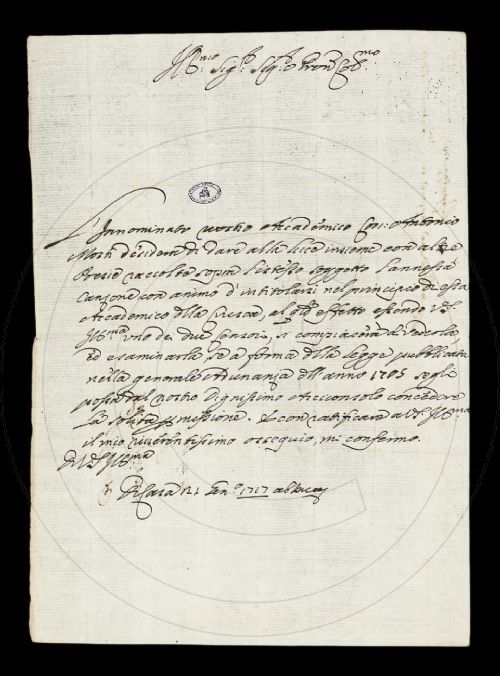 Ill.mo Sig.re Sig.re e Pron Col.mo
L'Innominato nostro Accadèmico Con: Antonio
desidera di dare alla luce insieme con altre
Poesie raccolte sopra l'istesso soggetto l'annessa
Canzone con animo d'intitolarsi nel principio di essa
Accademico dlla Crusca, al qle effetto essendo VS.
Ill.ma uno de' due Censori, si compiacerà di vederla,
ed esaminarla se a forma dlla legge pubblicata
nella generale Adunanza dll'anno 1705 se gli
possa dal nostro Dignissimo Arciconsolo concedere
la solita pmissione. E con ratificare a VS. Ill.ma
il mio riverentissimo ossequio, mi confermo.
Di VS. Ill.ma
Di Casa 21 Gen.o 1717 ab Inc.